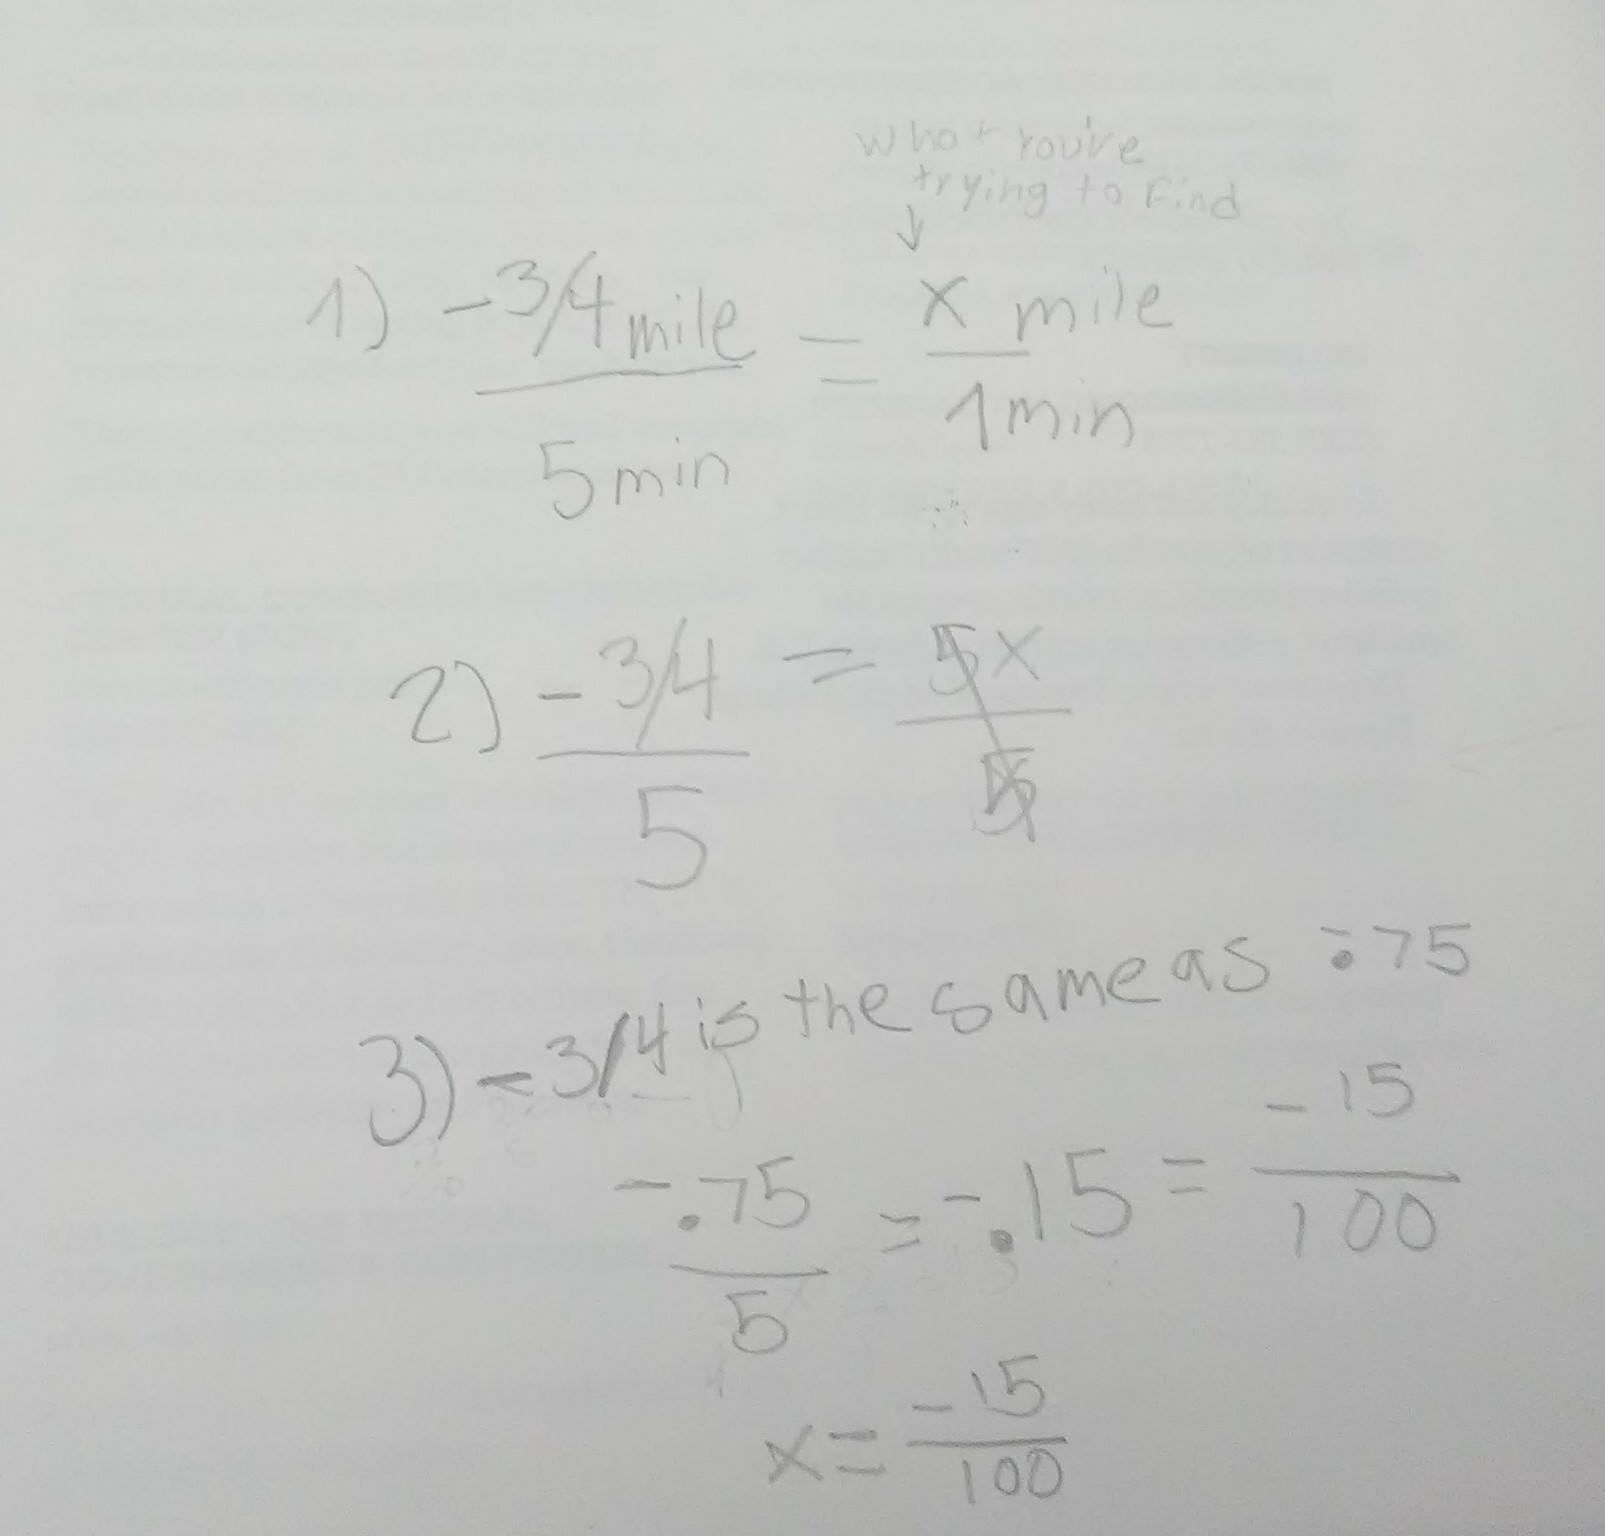 What You're
trying to Find
↓
1) -3/4 mile = x mile
5 min 1 min
2) -3/4 = 5x
5 5
3) -3/4 is the same as -.75
-.75 = -.15 = -15
5 100
x = -15
100